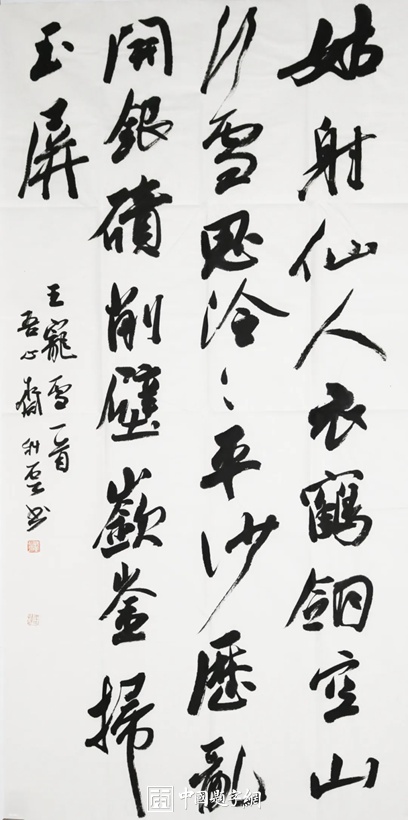 姑射仙人衣鶴翎空山
行雪思泠泠平沙歷亂
開銀磧削壁嶔崟掃
玉屏
王寵雪一首
吾心齋
书
中國題字網